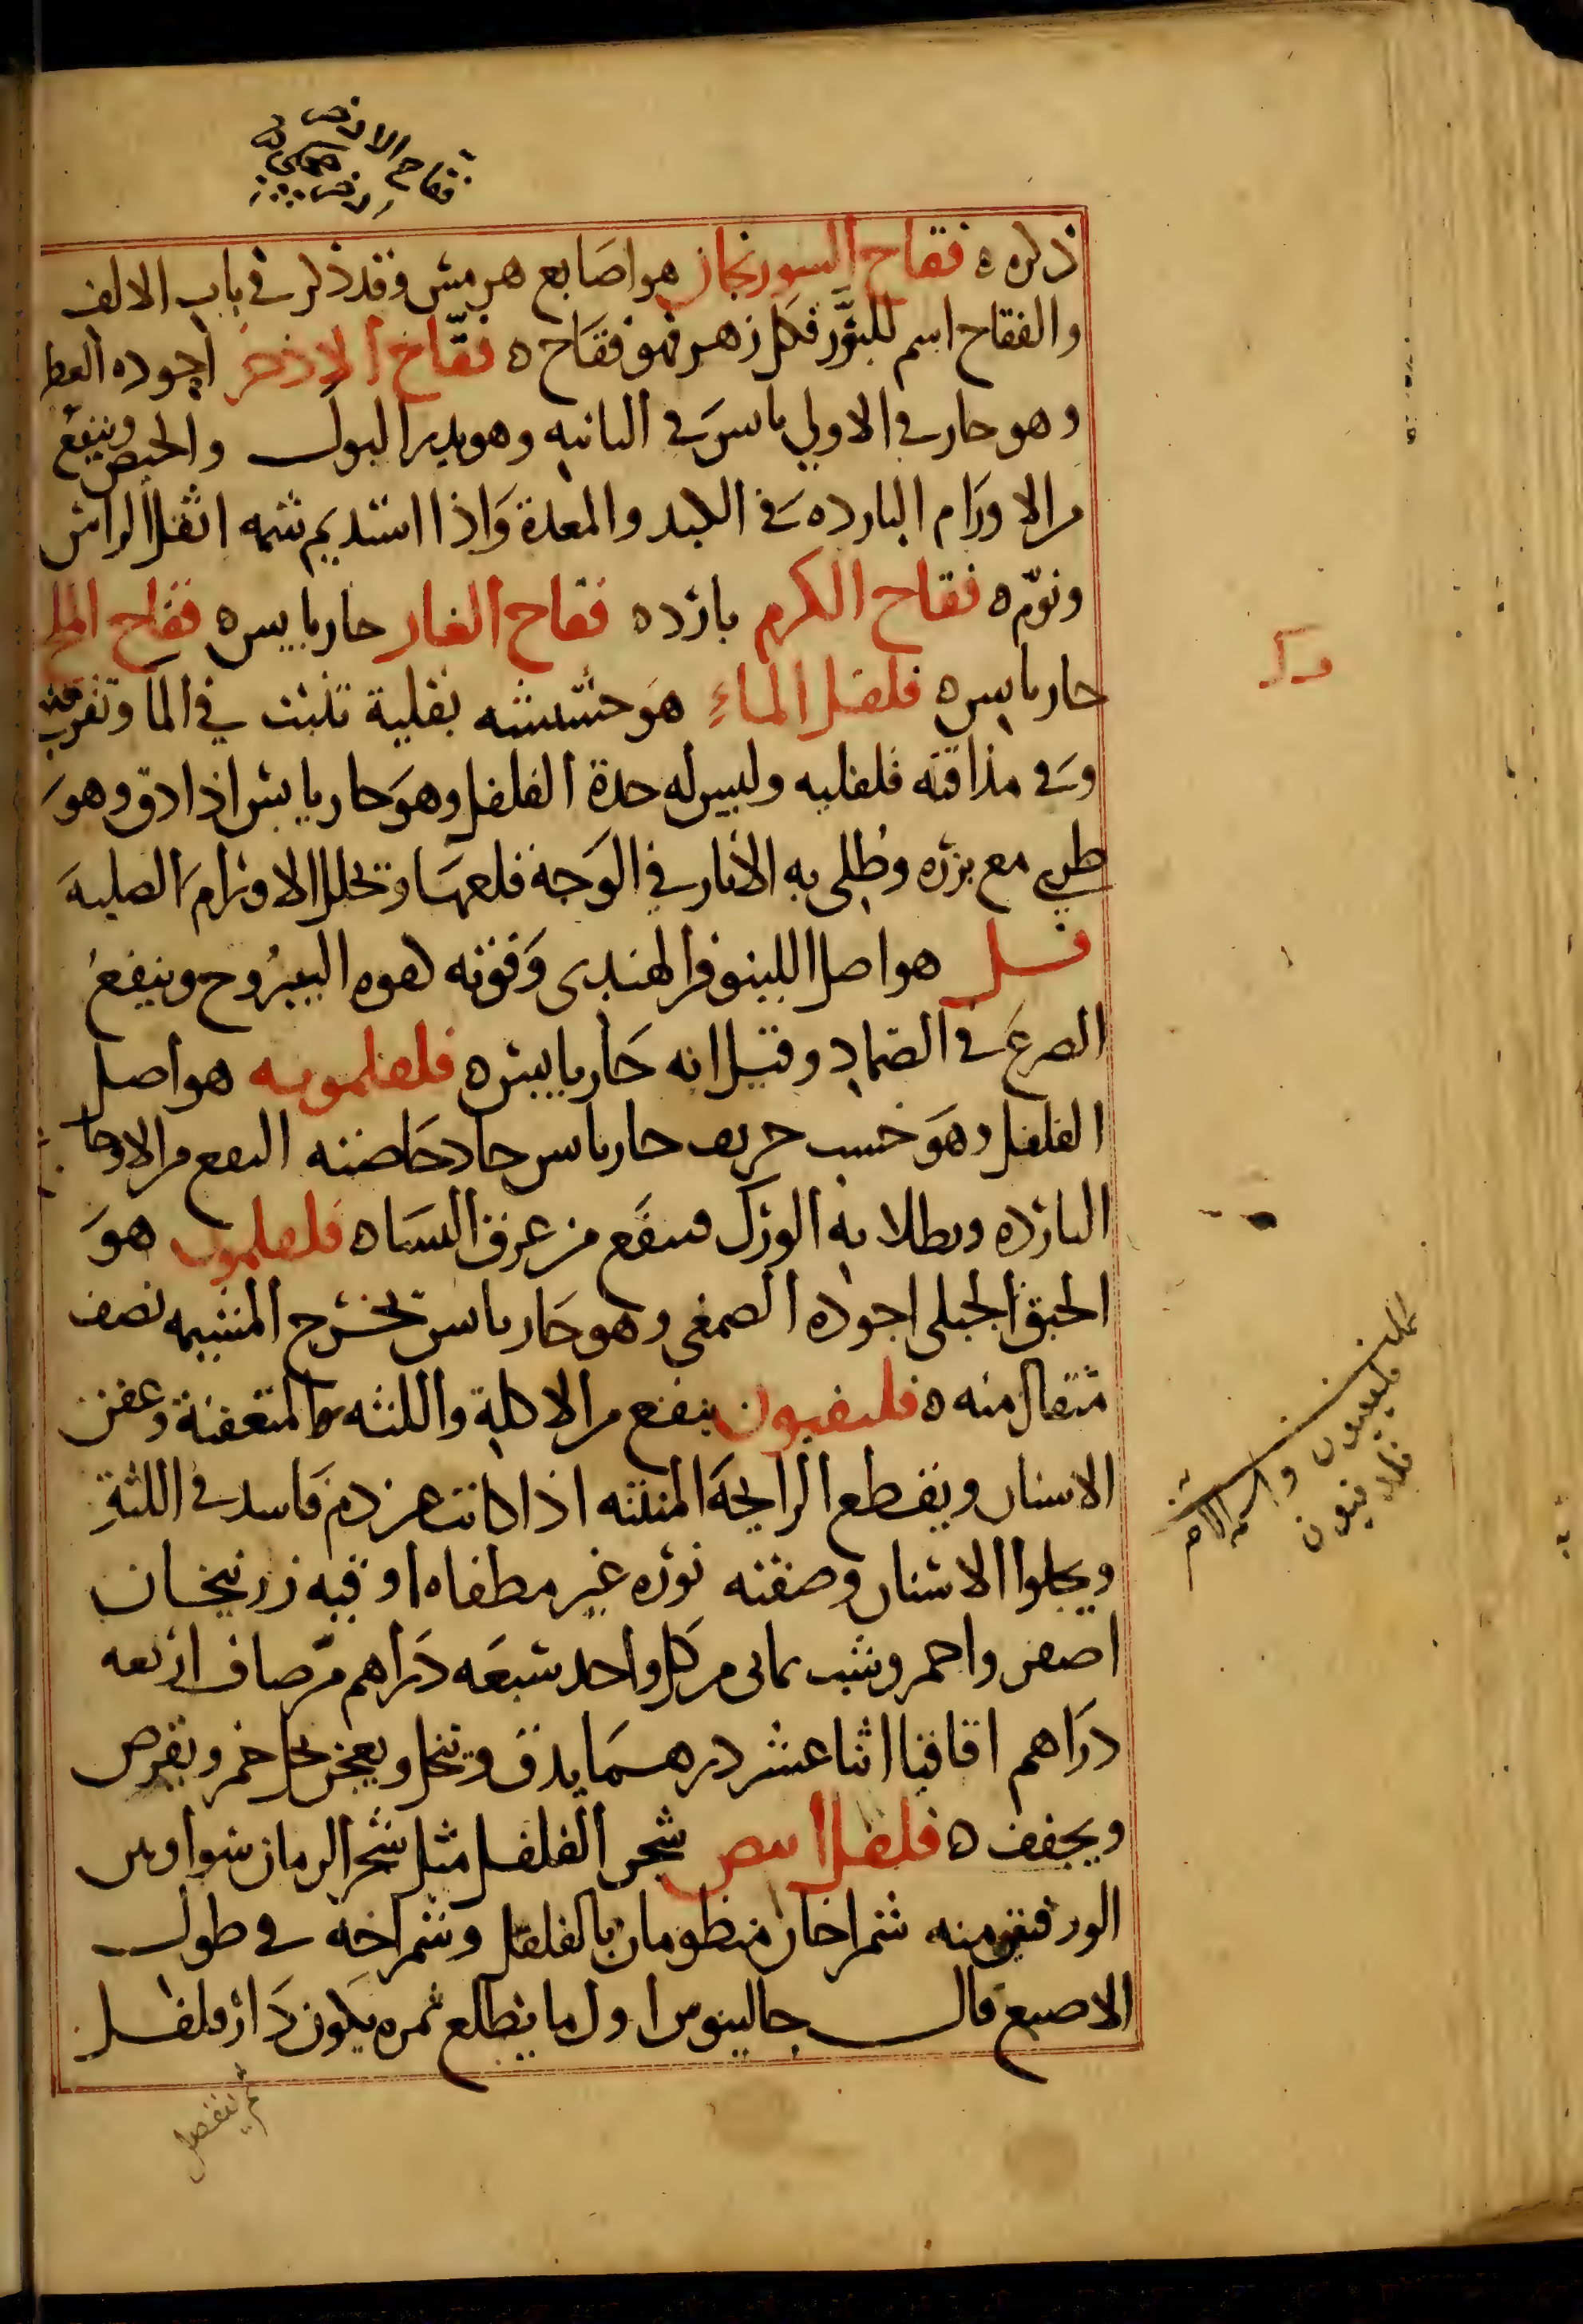 فقاح الاذخر
ذكره ه فقاح السورنجان هو اصابع هرمس وقد ذكر في باب الالف
والفقاح اسم للنَّور فكل زهر فهو فقاح ه فقّاح الاذخر اجوده العطر
وهو حار في الاولي يابس في الثانيه وهو يدر البول والحيض وينفع
من الاورام البارده في الكبد والمعدة واذا استديم شمه اثقل الراس
ونوّم ه فقاح الكرم بارد ه فقاح الغار حار يابس ه فقاح الملح
حار يابس ه فلفل الماء هو حشيشه بقلية تنبت في الما وتقرب منه
وفي مذاقته فلفليه وليس له حدة الفلفل وهو حار يابس اذا دق وهو
طري مع بزره وطلي به الاثار في الوجه قلعها وتحلل الاورام الصلبه
فل هو اصل اللينوفر الهندي وقوته كقوه اليبروح وينفع
الصرع في الضماد وقيل انه حار يابس ه فلفلمويه هو اصل
الفلفل وهو خشب حريف حار يابس حاد خاصته النفع من الاوجاع
البارده ويطلا به الورك فينفع من عرق النساه فلفلمون هو
الحبق الجبلي اجوده الصمغي وهو حار يابس يخرج المشيمه نصف
مثقال منه ه فلنفيون ينفع من الاكلة واللثه المتعفنة وعفن
الاسنان ويقطع الرايحة المنتنه اذا كانت عن دم فاسد في اللثة
ويجلوا الاسنان وصفته نوره غير مطفاه اوقيه زرنيخان
اصفر واحمر وشب يماني من كل واحد سبعه دراهم مر صاف اربعه
دراهم اقاقيا اثنا عشر درهما يدق وينخل ويعجن بخل خمر ويقرص
ويجفف ه فلفل ابيض شجر الفلفل مثل شجر الرمان سوا وبين
الورقتين منه شمراخان منظومان بالفلفل وشمراخه في طول
الاصبع قال جالينوس اول ما يطلع ثمره يكون دارفلفل
ثم ينفصل